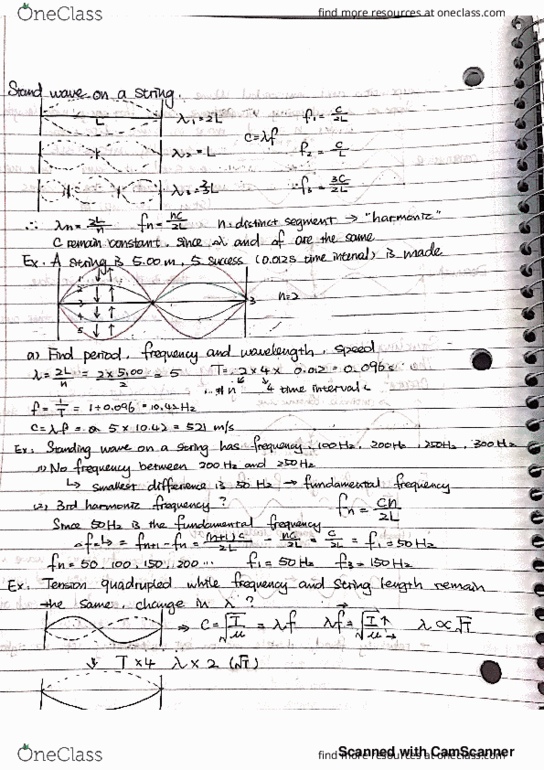 OneClass
find more resources at oneclass.com
Stand wave on a string.
L
λ₁ = 2L
f₁ = C/2L
C = λf
λ₂ = L
f₂ = C/L
λ₃ = 2/3 L
f₃ = 3C/2L
∴ λn = 2L/n fn = nC/2L n = distinct segment → "harmonic"
C remain constant, since and are the same
Ex. A string is 5.00 m, 5 success (0.012s time interval) is made
1
2
3
4
5
3
n=2
a) Find period, frequency and wavelength, speed
λ = 2L/n = 2 x 5.00/2 = 5 T = 2 x 4 x 0.012 = 0.096s
n 4 time interval
f = 1/T = 1÷0.096 = 10.42 Hz
C = λf = 5 x 10.42 = 521 m/s
Ex. Standing wave on a string has frequency, 100Hz, 200Hz, 250Hz, 300Hz
(1) No frequency between 200Hz and 250Hz
↳ smallest difference is 50 Hz → fundamental frequency
(2) 3rd harmonic frequency?
fn = Cn/2L
Since 50Hz is the fundamental frequency
= fn+1 - fn = (n+1)C/2L - nC/2L = C/2L = f₁ = 50Hz
fn = 50, 100, 150, 200 ... f₁ = 50Hz f₃ = 150Hz
Ex. Tension quadrupled while frequency and string length remain
the same, change in λ?
⇒ C = √T/μ = λf λf = √T↑/μ λ ∝ √T
↓ T x4 λ x 2 (√T)
Scanned with CamScanner
OneClass
find more resources at oneclass.com